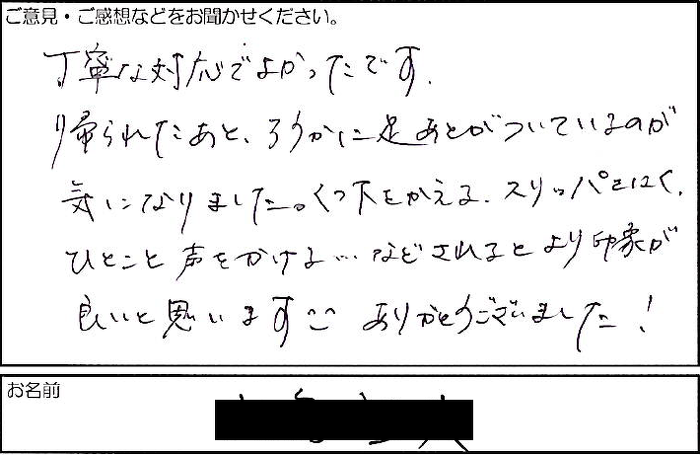 ご意見・ご感想などをお聞かせください。
丁寧な対応でよかったです.
帰られたあと、ろうかに足あとがついているのが
気になりました。くつ下をかえる、スリッパをはく、
ひとこと声をかける…などされるとより印象が
良いと思います ありがとうございました!
お名前